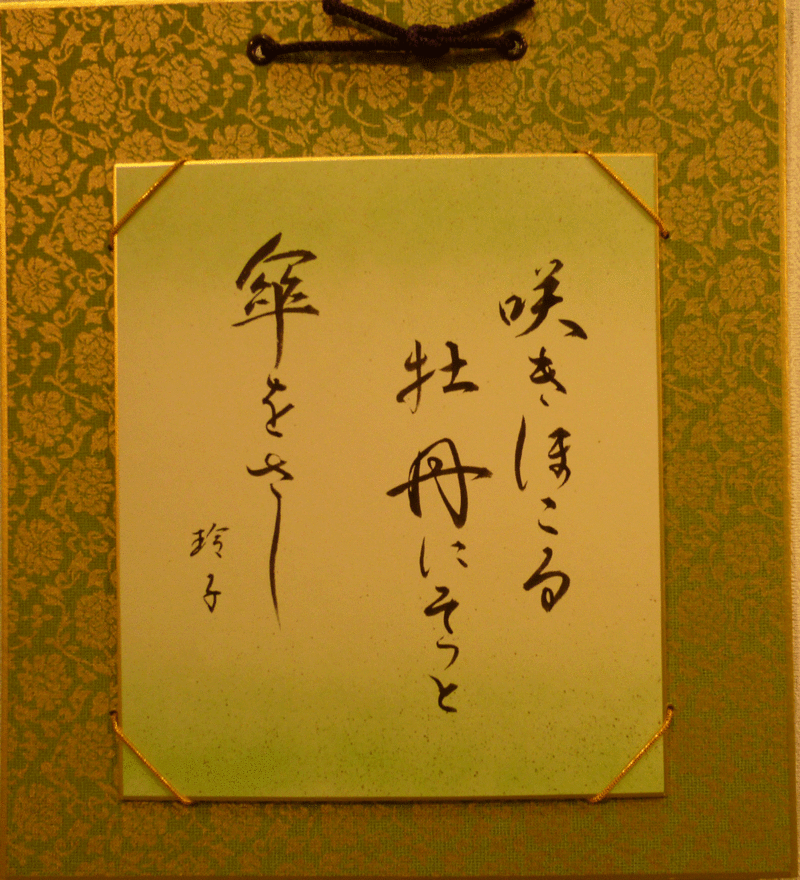 咲きほこる
牡丹にそっと
傘をさし
玲子